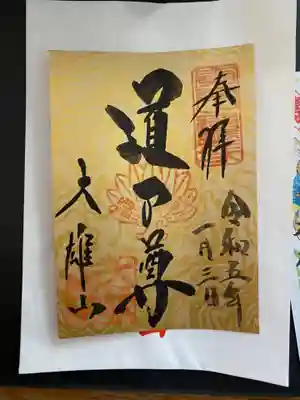 奉拝
令和五年
一月三日
道了尊
大雄山